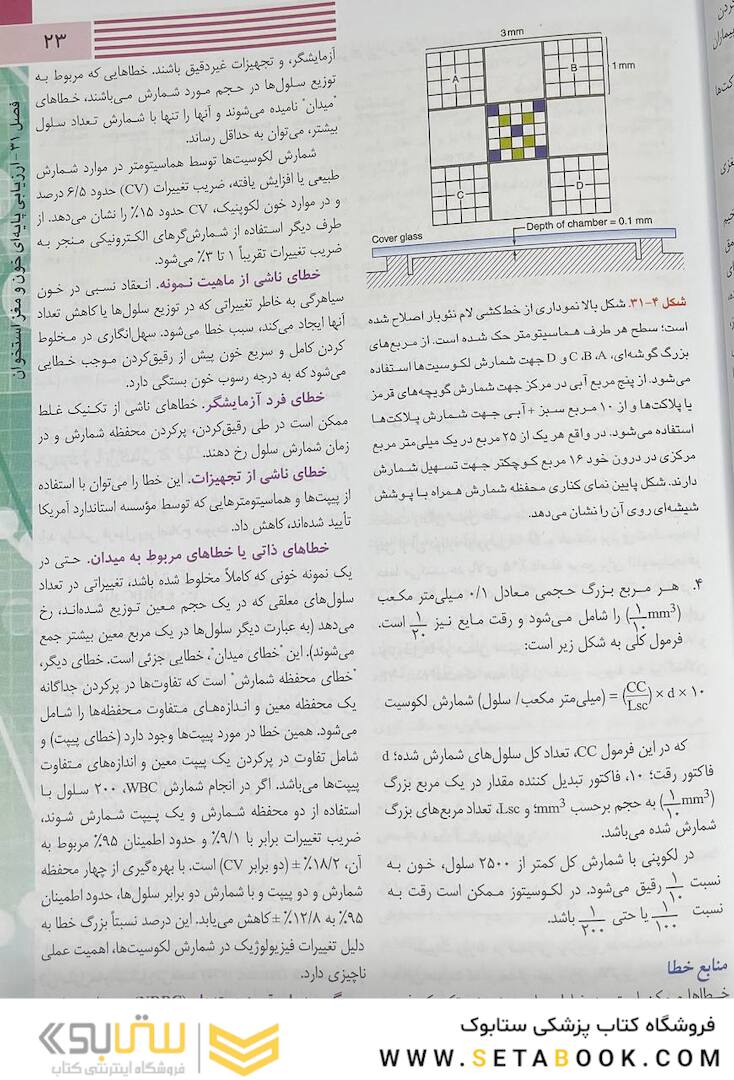 ۲۳
فصل ۳۱ - ارزیابی پایه‌ای خون و مغز استخوان
3 mm
1 mm
A
B
C
D
Cover glass
Depth of chamber = 0.1 mm
شکل ۴-۳۱. شکل بالا نموداری از خط‌کشی لام نئوبار اصلاح شده
است؛ سطح هر طرف هماسیتومتر حک شده است. از مربع‌های
بزرگ گوشه‌ای، C ،B ،A و D جهت شمارش لکوسیت‌ها استفاده
می‌شود. از پنج مربع آبی در مرکز جهت شمارش گویچه‌های قرمز
یا پلاکت‌ها و از ۱۰ مربع سبز + آبی جهت شمارش پلاکت‌ها
استفاده می‌شود. در واقع هر یک از ۲۵ مربع در یک میلی‌متر مربع
مرکزی در درون خود ۱۶ مربع کوچکتر جهت تسهیل شمارش
دارند. شکل پایین نمای کناری محفظه شمارش همراه با پوشش
شیشه‌ای روی آن را نشان می‌دهد.
۴. هر مربع بزرگ حجمی معادل ۰/۱ میلی‌متر مکعب
(۱/۱۰ mm³) را شامل می‌شود و رقت مایع نیز ۱/۲۰ است.
فرمول کلی به شکل زیر است:
شمارش لکوسیت (میلی‌متر مکعب/ سلول) = (CC/Lsc) × d × ۱۰
که در این فرمول CC، تعداد کل سلول‌های شمارش شده؛ d
فاکتور رقت؛ ۱۰، فاکتور تبدیل کننده مقدار در یک مربع بزرگ
(۱/۱۰ mm³) به حجم برحسب mm³؛ و Lsc، تعداد مربع‌های بزرگ
شمارش شده می‌باشد.
در لکوپنی با شمارش کل کمتر از ۲۵۰۰ سلول، خون به
نسبت ۱/۱۰ رقیق می‌شود. در لکوسیتوز ممکن است رقت به
نسبت ۱/۱۰۰ یا حتی ۱/۲۰۰ باشد.
منابع خطا
آزمایشگر، و تجهیزات غیردقیق باشند. خطاهایی که مربوط به
توزیع سلول‌ها در حجم مورد شمارش می‌باشند، خطاهای
"میدان" نامیده می‌شوند و آنها را تنها با شمارش تعداد سلول
بیشتر، می‌توان به حداقل رساند.
شمارش لکوسیت‌ها توسط هماسیتومتر در موارد شمارش
طبیعی یا افزایش یافته، ضریب تغییرات (CV) حدود ۶/۵ درصد
و در موارد خون لکوپنیک، CV حدود ۱۵٪ را نشان می‌دهد. از
طرف دیگر استفاده از شمارش‌گرهای الکترونیکی منجر به
ضریب تغییرات تقریباً ۱ تا ۳٪ می‌شود.
خطای ناشی از ماهیت نمونه. انعقاد نسبی در خون
سیاهرگی به خاطر تغییراتی که در توزیع سلول‌ها یا کاهش تعداد
آنها ایجاد می‌کند، سبب خطا می‌شود. سهل‌انگاری در مخلوط
کردن کامل و سریع خون پیش از رقیق‌کردن موجب خطایی
می‌شود که به درجه رسوب خون بستگی دارد.
خطای فرد آزمایشگر. خطاهای ناشی از تکنیک غلط
ممکن است در طی رقیق‌کردن، پرکردن محفظه شمارش و در
زمان شمارش سلول رخ دهند.
خطای ناشی از تجهیزات. این خطا را می‌توان با استفاده
از پیپت‌ها و هماسیتومترهایی که توسط مؤسسه استاندارد آمریکا
تأیید شده‌اند، کاهش داد.
خطاهای ذاتی یا خطاهای مربوط به میدان. حتی در
یک نمونه خونی که کاملاً مخلوط شده باشد، تغییراتی در تعداد
سلول‌های معلقی که در یک حجم معین توزیع شده‌اند، رخ
می‌دهد (به عبارت دیگر سلول‌ها در یک مربع معین بیشتر جمع
می‌شوند). این "خطای میدان"، خطایی جزئی است. خطای دیگر،
"خطای محفظه شمارش" است که تفاوت‌ها در پرکردن جداگانه
یک محفظه معین و اندازه‌های متفاوت محفظه‌ها را شامل
می‌شود. همین خطا در مورد پیپت‌ها وجود دارد (خطای پیپت) و
شامل تفاوت در پرکردن یک پیپت معین و اندازه‌های متفاوت
پیپت‌ها می‌باشد. اگر در انجام شمارش WBC، ۲۰۰ سلول با
استفاده از دو محفظه شمارش و یک پیپت شمارش شوند،
ضریب تغییرات برابر با ۹/۱٪ و حدود اطمینان ۹۵٪ مربوط به
آن، ۱۸/۲٪ ± (دو برابر CV) است. با بهره‌گیری از چهار محفظه
شمارش و دو پیپت و با شمارش دو برابر سلول‌ها، حدود اطمینان
۹۵٪ به ۱۲/۸٪ ± کاهش می‌یابد. این درصد نسبتاً بزرگ خطا به
دلیل تغییرات فیزیولوژیک در شمارش لکوسیت‌ها، اهمیت عملی
ناچیزی دارد.
فروشگاه کتاب پزشکی ستابوک
WWW.SETABOOK.COM
ستابوک
فروشگاه اینترنتی کتاب